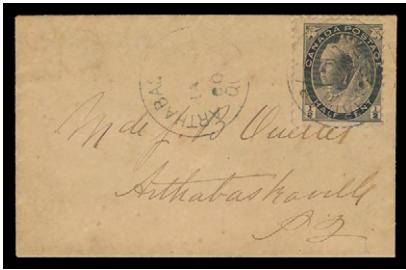 CANADA POSTAGE
½ HALF CENT ½
ARTHABAS
QU
Mde J. B. Ouellet
Arthabaskaville
P.Q.